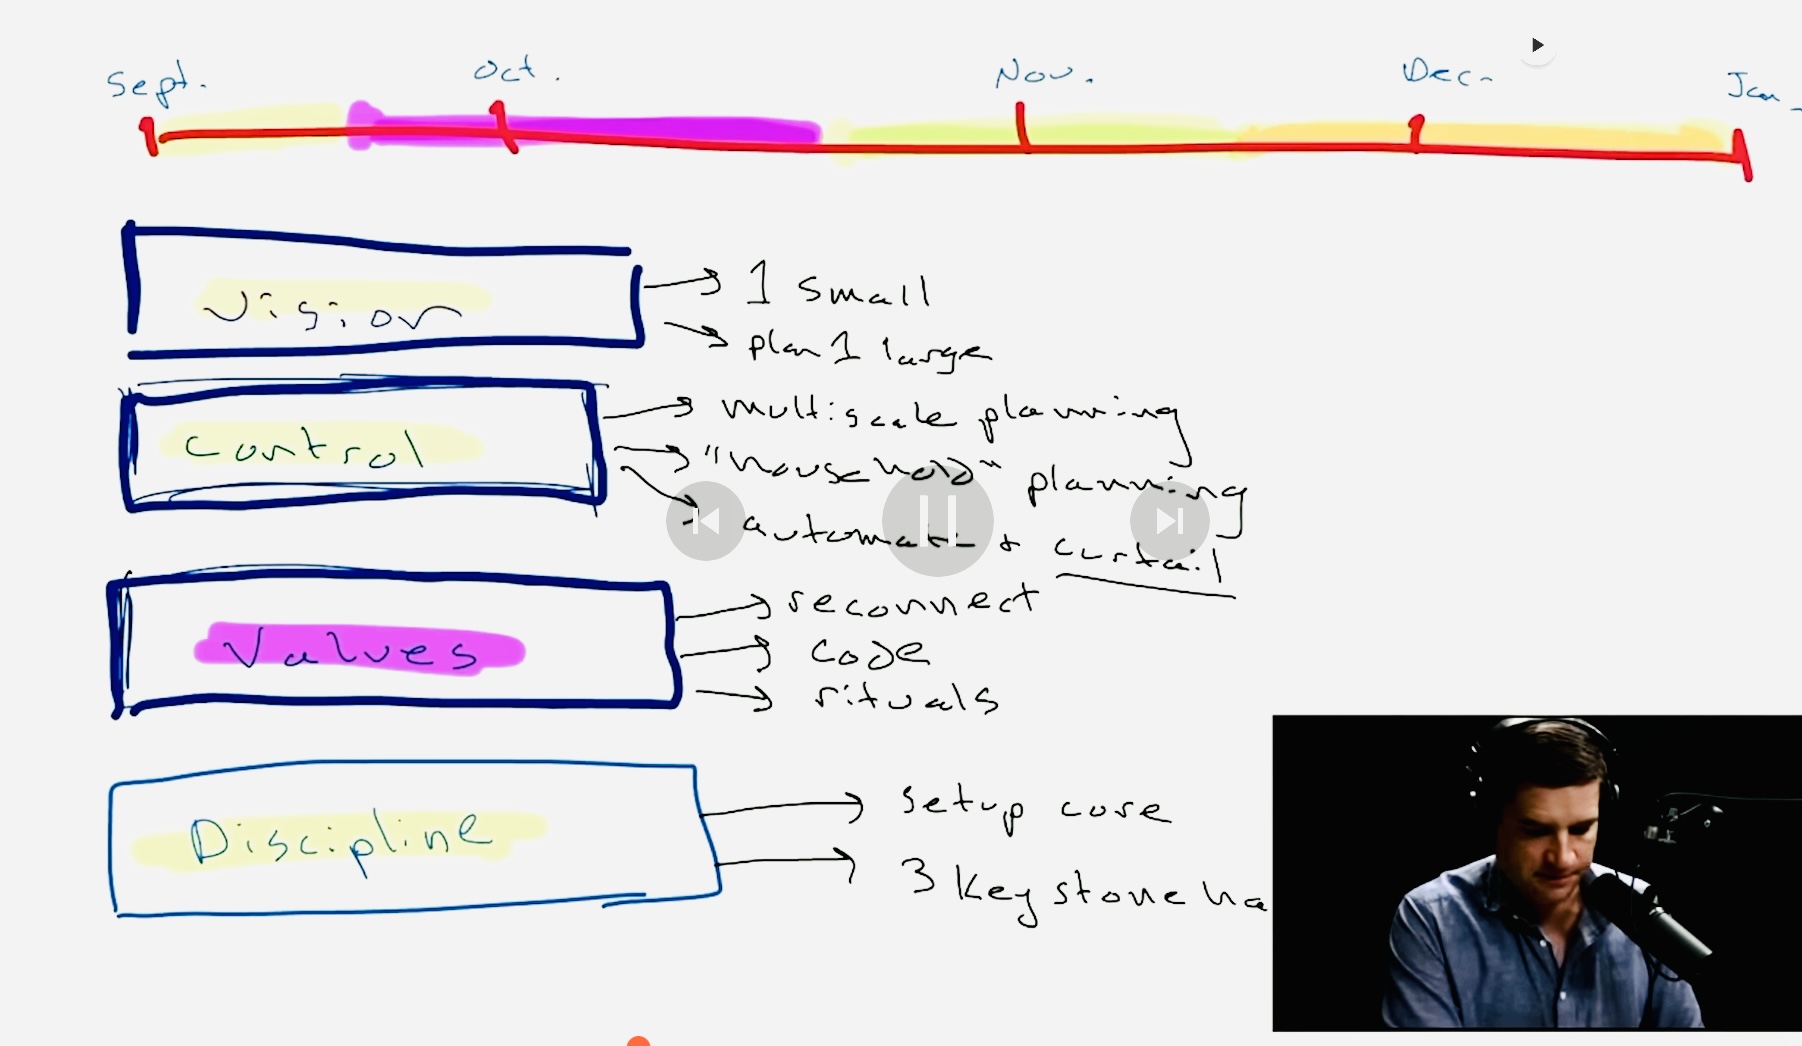 Sept. Oct. Nov. Dec. Jan.
Vision
1 small
plan 1 large
control
multiscale planning
"household" planning
automate + curtail
Values
reconnect
code
rituals
Discipline
setup core
3 keystone ha